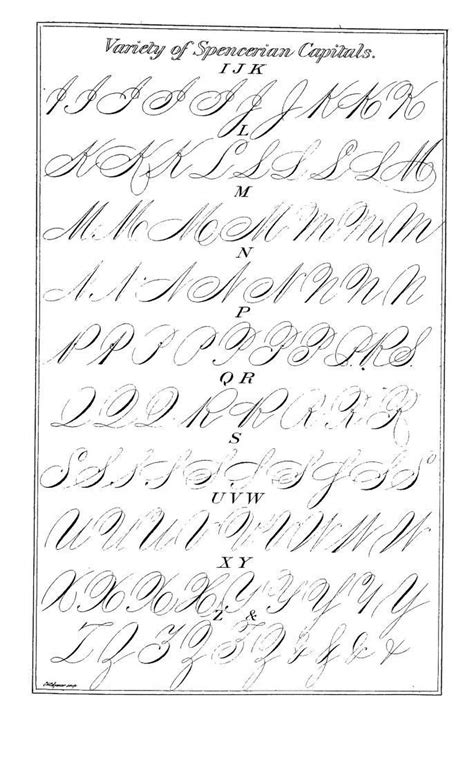 Variety of Spencerian Capitals.
I J K
I I I I I J J K K K
L
K K K L L L L L M
M
M M M M M M M
N
N N N N N N N N
P
P P P P P P P Q R S
Q R
Q Q Q R R R R R
S
S S S S S S S S S S
U V W
U U U V V V W W W
X Y
X X X X Y Y Y Y Y
Z &
Z Z Z Z Z Z & & & &